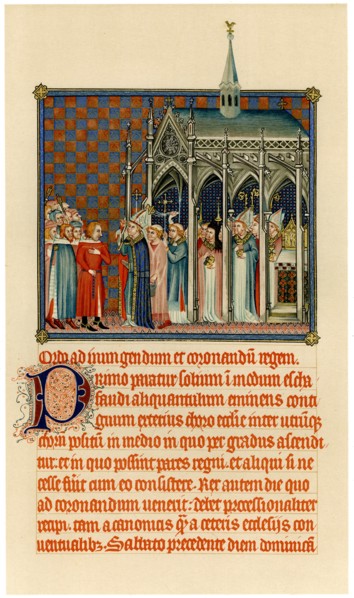 Ordo ad inungendum et coronandū regem.
Primo paratur solium ī modum escha
faudi aliquantulum eminens conti
guum exterius choro ecclie inter utrūq;
chorū positū in medio in quo per gradus ascendi
tur. et in quo possint pares regni. et aliqui si ne
cesse fūit cum eo consistere. Rex autem die quo
ad coronandum uenerit. debet processionaliter
recipi. tam a canonicis q̄ a ceteris ecclesijs con
uentualibz. Sabbato precedente diem dominicā